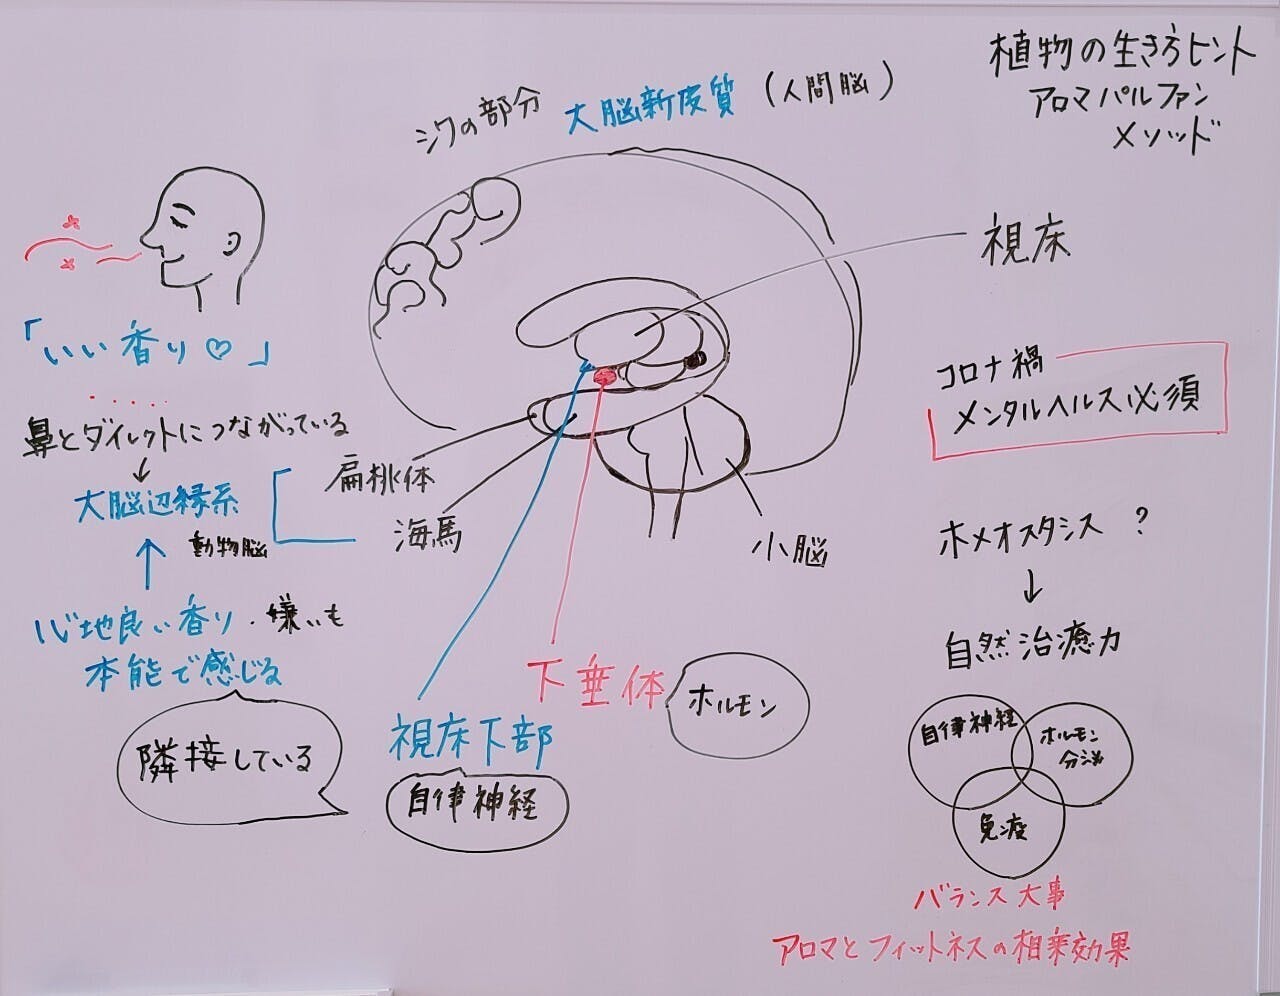 植物の生き方ヒント
アロマパルファン
メソッド
シワの部分 大脳新皮質 (人間脳)
視床
「いい香り♡」
鼻とダイレクトにつながっている
↓
大脳辺縁系
動物脳
↑
心地良い香り・嫌いも
本能で感じる
隣接している
扁桃体
海馬
小脳
下垂体
ホルモン
視床下部
自律神経
コロナ禍
メンタルヘルス必須
ホメオスタシス ?
↓
自然治癒力
自律神経
ホルモン
分泌
免疫
バランス大事
アロマとフィットネスの相乗効果